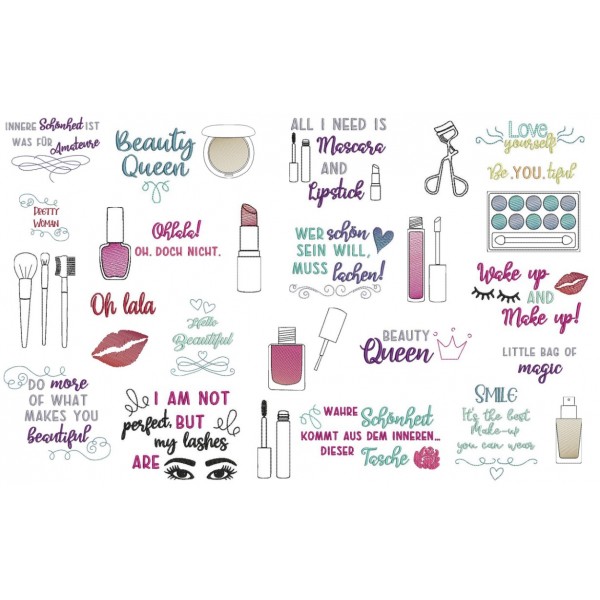 INNERE Schönheit IST
WAS FÜR Amateure
Beauty
Queen
ALL I NEED IS
Mascara
AND
Lipstick
Love
yourself
Be.YOU.tiful
PRETTY
WOMAN
Ohlala!
OH. DOCH NICHT.
WER schön
SEIN WILL,
MUSS lachen!
Wake up
AND
Make up!
Oh lala
Hello
Beautiful
BEAUTY
Queen
LITTLE BAG OF
magic
DO more
OF WHAT
MAKES YOU
beautiful
I AM NOT
perfect, BUT
my lashes
ARE
WAHRE Schönheit
KOMMT AUS DEM INNEREN...
DIESER Tasche
SMILE
It's the best
Make-up
you can wear